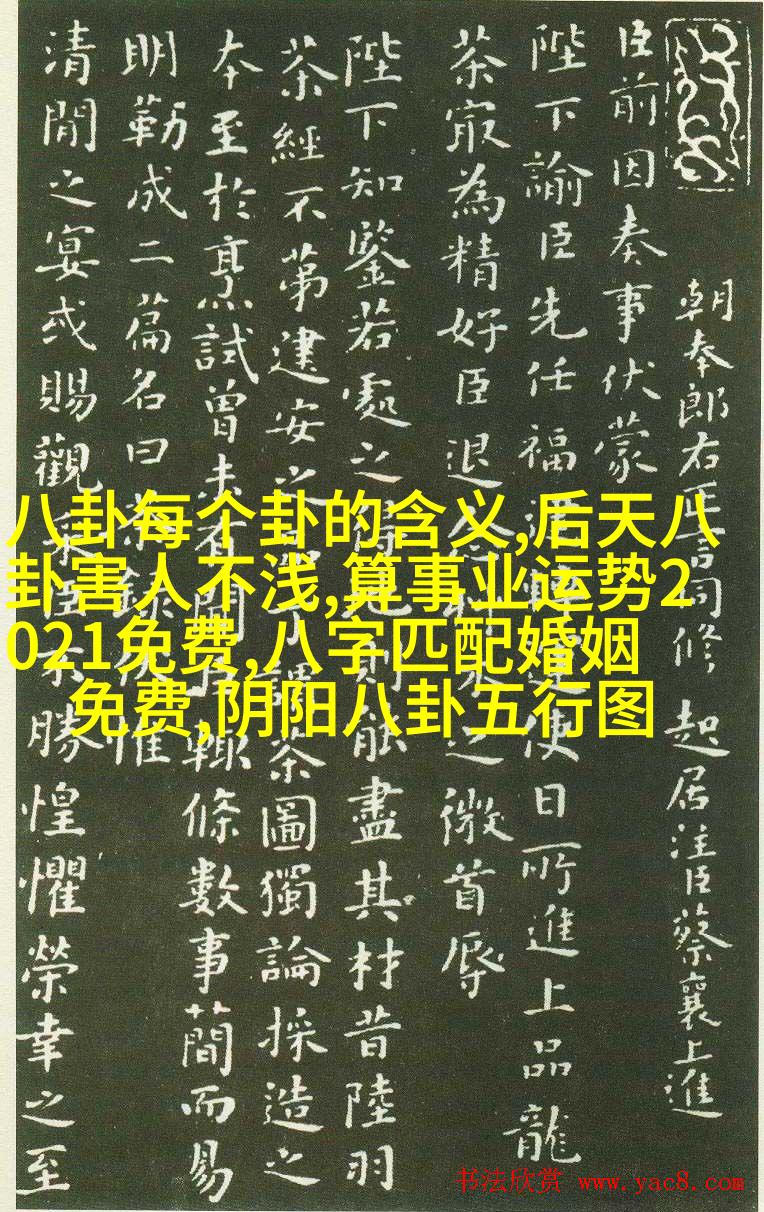 朝奉郎右正言同修 起居注臣蔡襄上進
臣前因奏事伏蒙
陛下諭臣先任福 使日所進上品龍
茶冣為精好臣退 之微首辱
陛下知鑒若處之 則能盡其材昔陸羽
茶經不第建安之 謂茶圖獨論採造之
本至於烹試曾未有聞 輒條數事簡而易
明勒成二篇名曰 惟
清閒之宴或賜觀 勝惶懼榮幸之至
八卦每个卦的含义,后天八
卦害人不浅,算事业运势2
021免费,八字匹配婚姻
免费,阴阳八卦五行图
书法欣赏 www.yac8.com